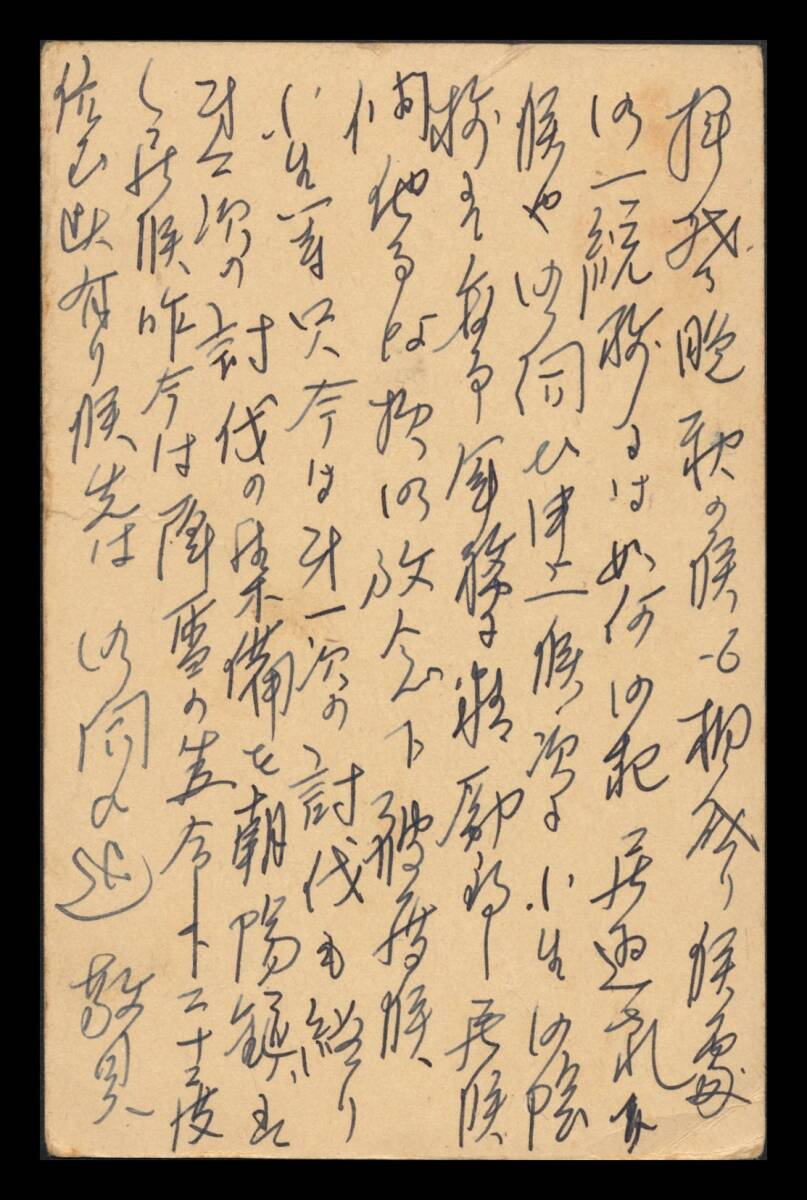 拝啓 晩秋の候と相成り候処
御一統様には如何御起居遊され
候や御伺ひ申上候 次に小生御陰
様にて無事軍務に精励致し居候
間他事な
がら御放念下被度候
小生等只今は第一次の討伐も終り
第二次の討伐の準備を朝陽鎮に
し居候 昨今は降雪の上零下二十二度
位迄出有り候 先は御伺ひ迄 敬具